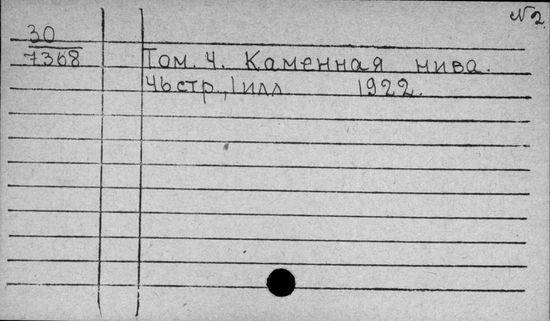 №2.
30
7368
Том. 4. Каменная нива.
46стр., 1илл 1922.